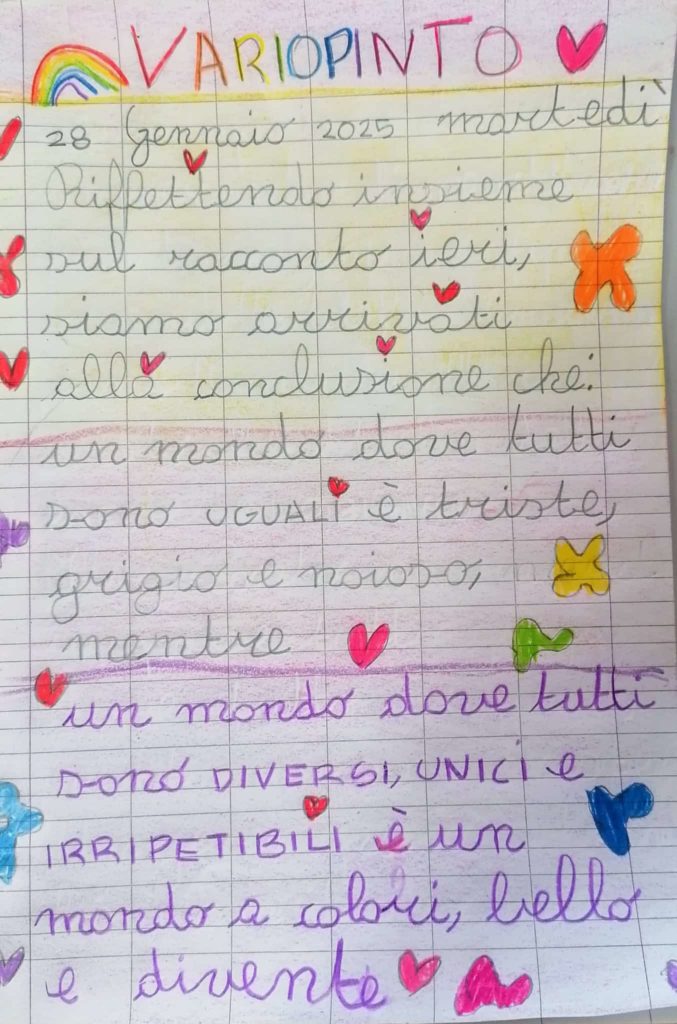 VARIOPINTO
28 Gennaio 2025 martedì
Riflettendo insieme
sul racconto ieri,
siamo arrivati
alla conclusione che:
un mondo dove tutti
sono UGUALI è triste,
grigio e noioso,
mentre
un mondo dove tutti
sono DIVERSI, UNICI e
IRRIPETIBILI è un
mondo a colori, bello
e divente